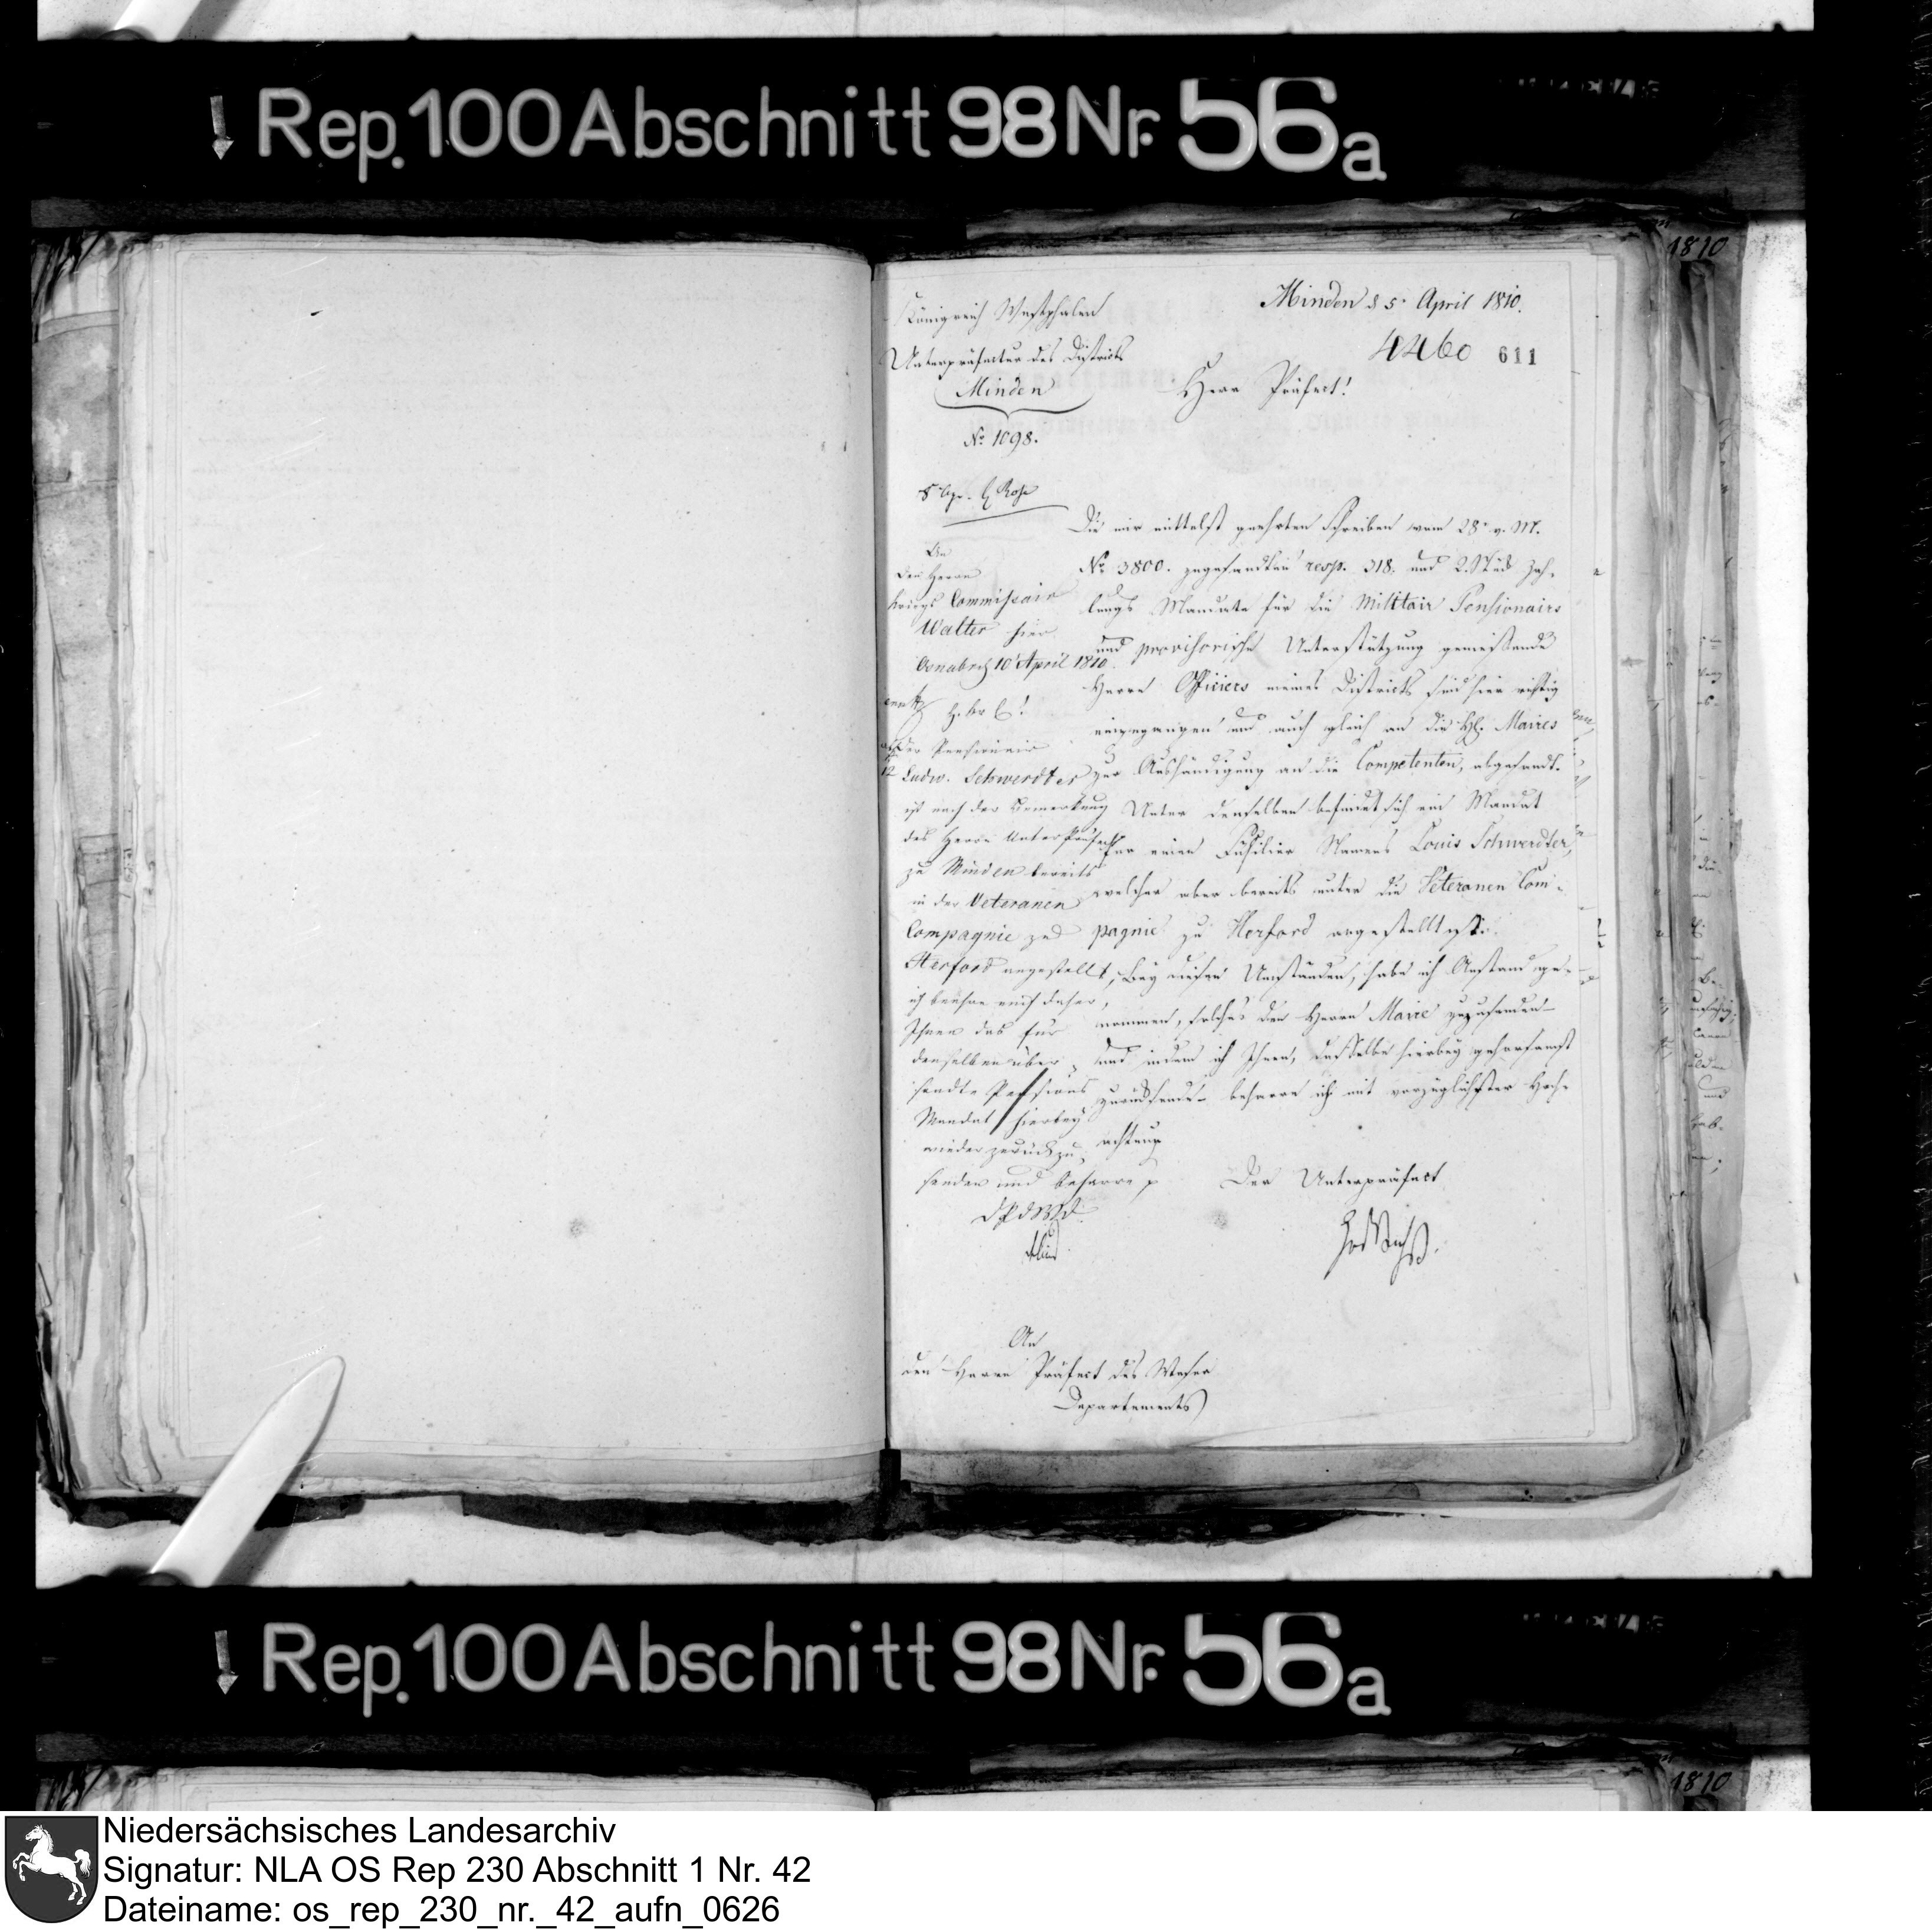 Rep. 100 Abschnitt 98 Nr. 56a
1810
Königreich Westphalen
Unterpräfectur des Districts
Minden
No 1098.
Minden d 5. April 1810.
4460 611
Herr Präfect!
Die mir mittelst geehrten Schreiben vom 28t v. M.
No 3800. zugesandten resp. 318. und 2. Stück Zah-
lungs Mandate für die Militair Pensionairs
und provisorische Unterstützung genießende
Herrn Officiers meines Districts sind hier richtig
eingegangen und auch gleich an die HH. Maires
zur Aushändigung an die Competenten, abgesandt.
Unter denselben befindet sich ein Mandat
für einen Füsilier Namens Louis Schwerdter,
welcher aber bereits unter die Veteranen Com-
pagnie zu Herford angestellt ist.
Bey diesen Umständen, habe ich Anstand ge-
nommen, solches den Herrn Maire zuzusenden
und indem ich Ihnen, dasselbe hierbey gehorsamst
zurücksende, beharre ich mit vorzüglichster Hoch-
achtung
Der Unterpräfect
An
den Herrn Präfect des Weser
Departements
An
den Herrn
Kriegs Commissair
Walter hier
Osnabrück 10 April 1810.
Der Pensionair
Ludw. Schwerdter
ist nach der Bemerkung
des Herrn Unterpräfect
zu Minden bereits
in der Veteranen
Compagnie zu
Herford angestellt,
ich beehre mich daher,
Ihnen das für
denselben über-
sandte Pensions
Mandat hierbey
wieder zurück zu
senden und beharre p
Rep. 100 Abschnitt 98 Nr. 56a
1810
Niedersächsisches Landesarchiv
Signatur: NLA OS Rep 230 Abschnitt 1 Nr. 42
Dateiname: os_rep_230_nr._42_aufn_0626